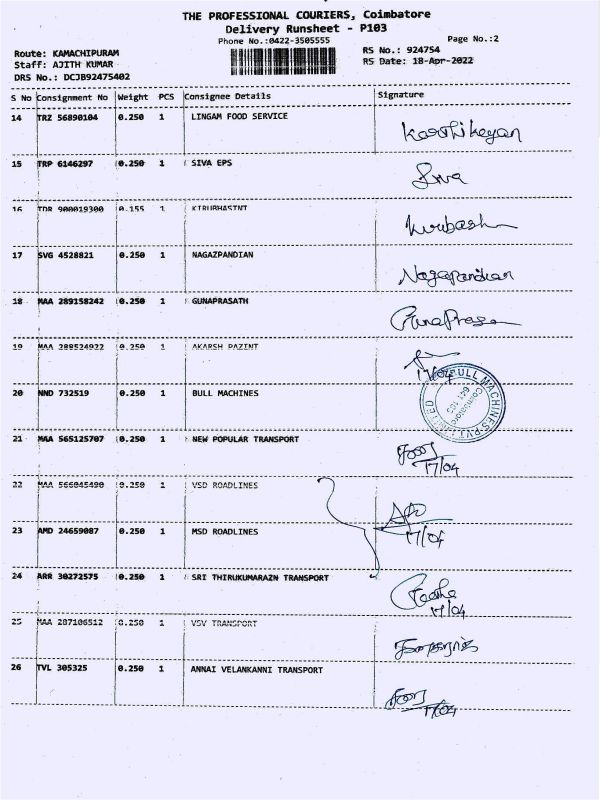 THE PROFESSIONAL COURIERS, Coimbatore
Delivery Runsheet - P103
Phone No.:0422-3505555
Page No.:2
Route: KAMACHIPURAM
RS No.: 924754
Staff: AJITH KUMAR
RS Date: 18-Apr-2022
DRS No.: DCJB92475402
S No Consignment No Weight PCS Consignee Details Signature
14 TRZ 56890104 0.250 1 LINGAM FOOD SERVICE Karthikeyan
15 TRP 6146297 0.250 1 SIVA EPS Siva
16 TDR 900019300 0.155 1 KIRUBHASINI Kirubash
17 SVG 4528821 0.250 1 NAGAZPANDIAN Nagapandian
18 MAA 289158242 0.250 1 GUNAPRASATH GunaPrasa
19 MAA 288524922 0.250 1 AKARSH PAZINT
17/04
20 NND 732519 0.250 1 BULL MACHINES BULL MACHINES PVT LIMITED
Coimbatore
641 103
21 MAA 565125707 0.250 1 NEW POPULAR TRANSPORT
17/04
22 MAA 566045490 0.250 1 VSD ROADLINES
23 AMD 24659087 0.250 1 MSD ROADLINES
17/04
24 ARR 30272575 0.250 1 SRI THIRUKUMARAZN TRANSPORT
17/04
25 MAA 287106512 0.250 1 VSV TRANSPORT
26 TVL 305325 0.250 1 ANNAI VELANKANNI TRANSPORT
17/04